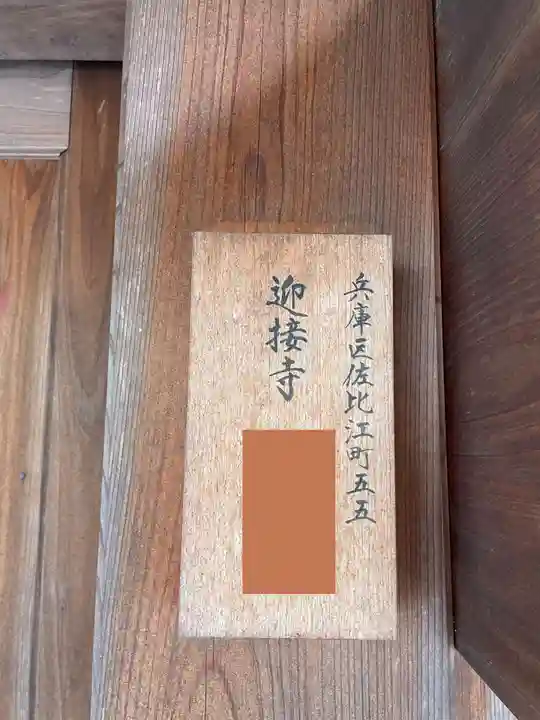 兵庫区佐比江町五五
迎接寺